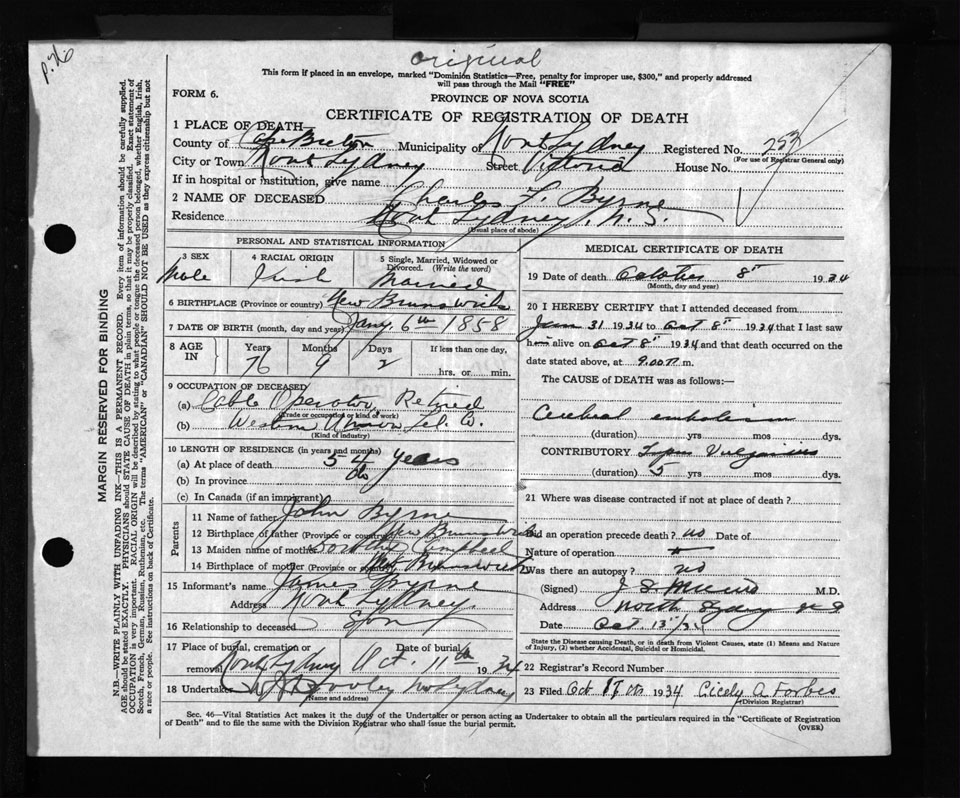 P. 76
original
This form if placed in an envelope, marked "Dominion Statistics—Free, penalty for improper use, $300," and properly addressed
will pass through the Mail "FREE"
FORM 6.
PROVINCE OF NOVA SCOTIA
CERTIFICATE OF REGISTRATION OF DEATH
MARGIN RESERVED FOR BINDING
N.B.—WRITE PLAINLY WITH UNFADING INK—THIS IS A PERMANENT RECORD. Every item of information should be carefully supplied.
AGE should be stated EXACTLY. PHYSICIANS should STATE CAUSE OF DEATH in plain terms, so that it may be properly classified. Exact statement of
OCCUPATION is very important. RACIAL ORIGIN will be described by stating to what people or tongue the deceased person belonged, whether English, Irish,
Scotch, French, German, Russian, Ruthenian, etc. The terms "AMERICAN" or "CANADIAN" SHOULD NOT BE USED as they express citizenship but not
a race or people. See instructions on back of Certificate.
1 PLACE OF DEATH—
County of Cape Breton Municipality of North Sydney Registered No. 253
(For use of Registrar General only)
City or Town North Sydney Street Victoria House No.
If in hospital or institution, give name
2 NAME OF DECEASED Charles F. Byrne
Residence North Sydney, N. S.
(Usual place of abode)
PERSONAL AND STATISTICAL INFORMATION
3 SEX
Male
4 RACIAL ORIGIN
Irish
5 Single, Married, Widowed or
Divorced. (Write the word)
Married
6 BIRTHPLACE (Province or country) New Brunswick
7 DATE OF BIRTH (month, day and year) Jany. 6th 1858
8 AGE IN
Years Months Days If less than one day,
76 9 2 hrs. or min.
9 OCCUPATION OF DECEASED
(a) Cable Operator, Retired
(Trade or occupation or kind of work)
(b) Western Union Tel. Co.
(Kind of industry)
10 LENGTH OF RESIDENCE (in years and months)
(a) At place of death 54 years
(b) In province do
(c) In Canada (if an immigrant)
Parents
11 Name of father John Byrne
12 Birthplace of father (Province or country) New Brunswick
13 Maiden name of mother Dorothy Campbell
14 Birthplace of mother (Province or country) New Brunswick
15 Informant's name James Byrne
Address North Sydney
16 Relationship to deceased Son
17 Place of burial, cremation or Date of burial
removal North Sydney Oct. 11th 1934
18 Undertaker
(Name and address)
MEDICAL CERTIFICATE OF DEATH
19 Date of death October 8th 1934
(Month, day and year)
20 I HEREBY CERTIFY that I attended deceased from
31 1934 to Oct 8th 1934 that I last saw
him alive on Oct 8th 1934 and that death occurred on the
date stated above, at 9.00 m.
The CAUSE of DEATH was as follows:
Cerebral embolism
(duration) yrs mos dys.
CONTRIBUTORY Lupus
(duration) 5 yrs mos dys.
21 Where was disease contracted if not at place of death?
Did an operation precede death? no Date of
Nature of operation
Was there an autopsy? no
(Signed) M.D.
Address North Sydney N S
Date Oct. 13th/34
State the Disease causing Death, or in death from Violent Causes, state (1) Means and Nature
of Injury, (2) whether Accidental, Suicidal or Homicidal.
22 Registrar's Record Number
23 Filed Oct 1934 Cicely A Forbes
(Division Registrar)
Sec. 46—Vital Statistics Act makes it the duty of the Undertaker or person acting as Undertaker to obtain all the particulars required in the "Certificate of Registration
of Death" and to file the same with the Division Registrar who shall issue the burial permit.
(OVER)